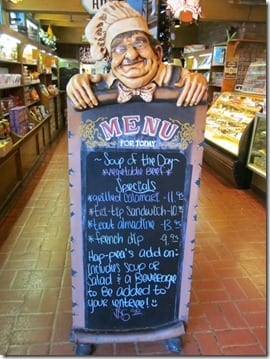 MENU
FOR TODAY
~Soup of the Day~
*vegetable Beef*
Specials
*grilled calamari - 11.95
*tri-tip sandwich - 10.95
*trout almadine - 13.95
*french dip - 9.95
Hop-pea's add on:
Includes soup or
Salad & a Beverage
to be added to
your entree!